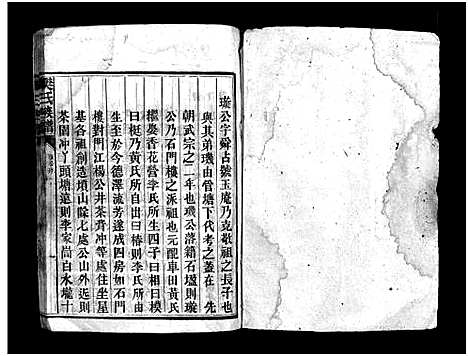 璇公字舜古號玉庵乃克敬祖之長子也
與其弟璣由管塘下代考之蓋在 先
朝武宗之二年也璣公落籍石壚則璇
公乃石門樓之派祖也元配車田黃氏
繼娶香花營李氏所生四子曰相曰模
曰梃乃黃氏所自出曰椿則李氏所
生也至於今德澤流芳遂成四房如石門
樓對門江楊公井茶寮沖等處住坐屋
基各祖創造墳山餘七處公山外遠則
茶園冲丫頭塘遠則李家尚白水壠十
氏族譜